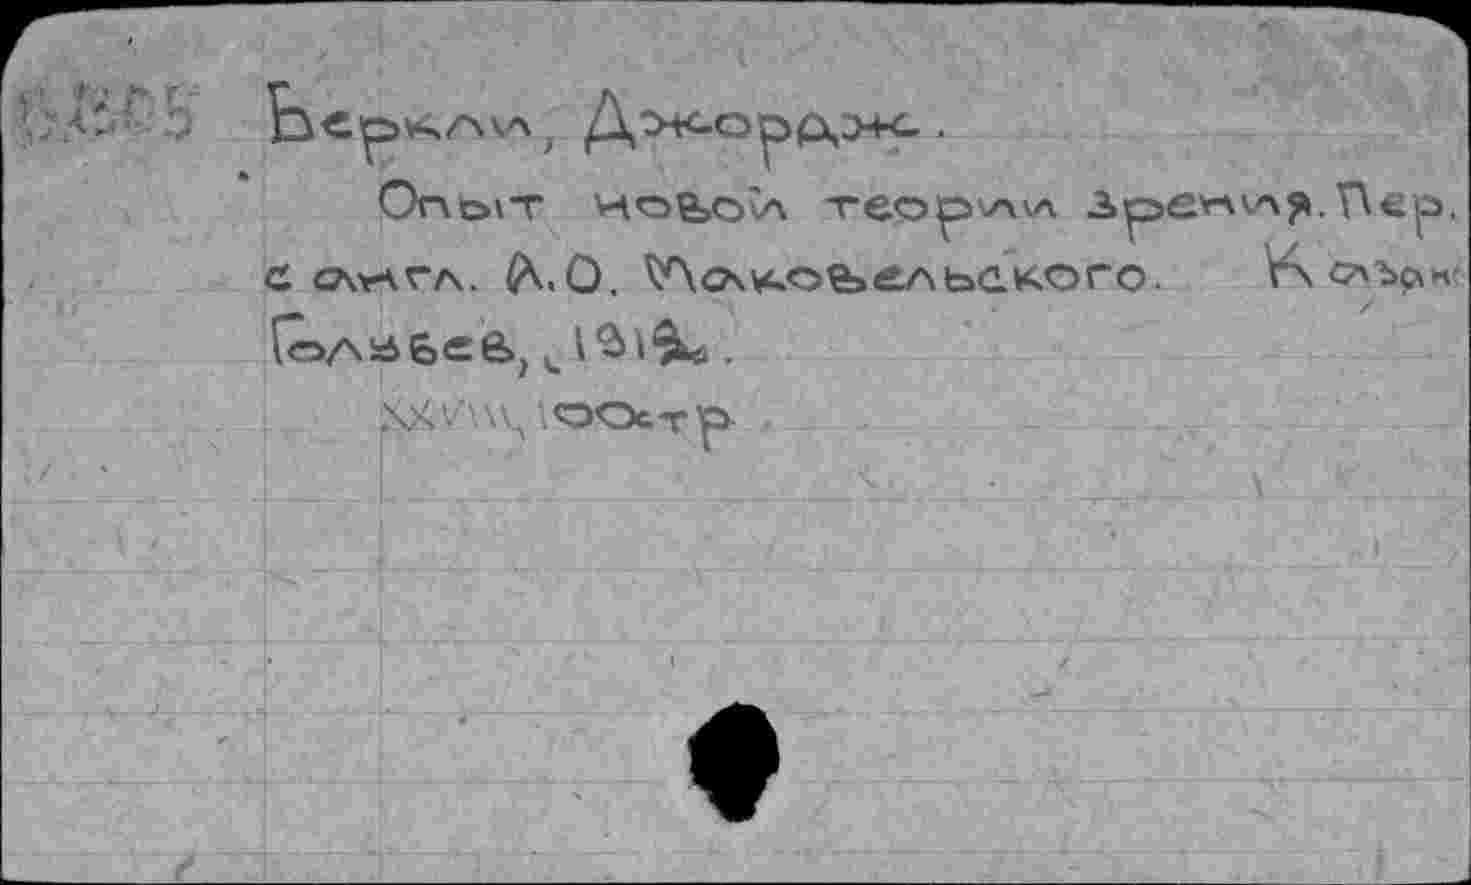 Беркли, Джордж.
Опыт новой теории зрения. Пер.
с англ. А.О. Маковельского. Казан
Голубев, 1912.
XXVIII, 100стр